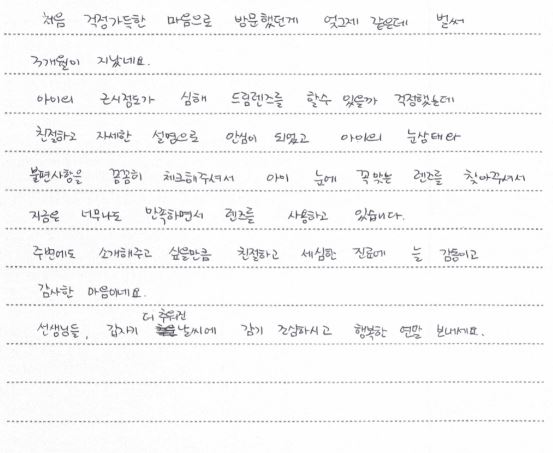 처음 걱정가득한 마음으로 방문했던게 엊그제 같은데 벌써
3개월이 지났네요.
아이의 근시정도가 심해 드림렌즈를 할수 있을까 걱정했는데
친절하고 자세한 설명으로 안심이 되었고 아이의 눈상태와
불편사항을 꼼꼼히 체크해주셔서 아이 눈에 꼭맞는 렌즈를 찾아주셔서
지금은 너무나도 만족하면서 렌즈를 사용하고 있습니다.
주변에도 소개해주고 싶을만큼 친절하고 세심한 진료에 늘 감동이고
감사한 마음이네요.
선생님들, 갑자기 더 추워진 날씨에 감기 조심하시고 행복한 연말 보내세요.